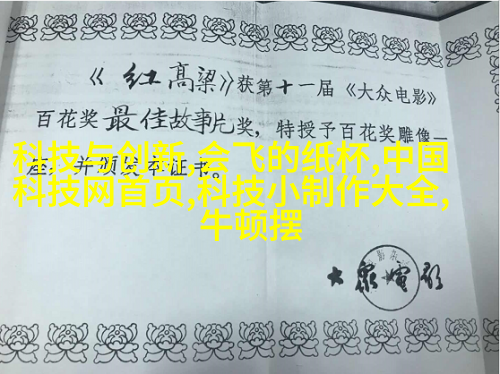 《红高粱》获第十一届《大众电影》
百花奖最佳故事片奖，特授予百花奖雕像一
座，并颁发本证书。
科技与创新,会飞的纸杯,中国
科技网首页,科技小制作大全,
牛顿摆
大众电影